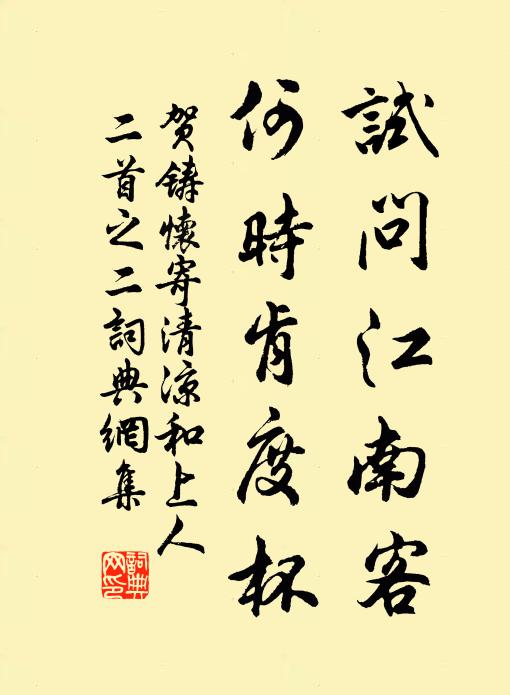 試問江南客
何時肯度杯
贺鑄懷寄清涼和上人
二首之二詞典網集
詞典网印